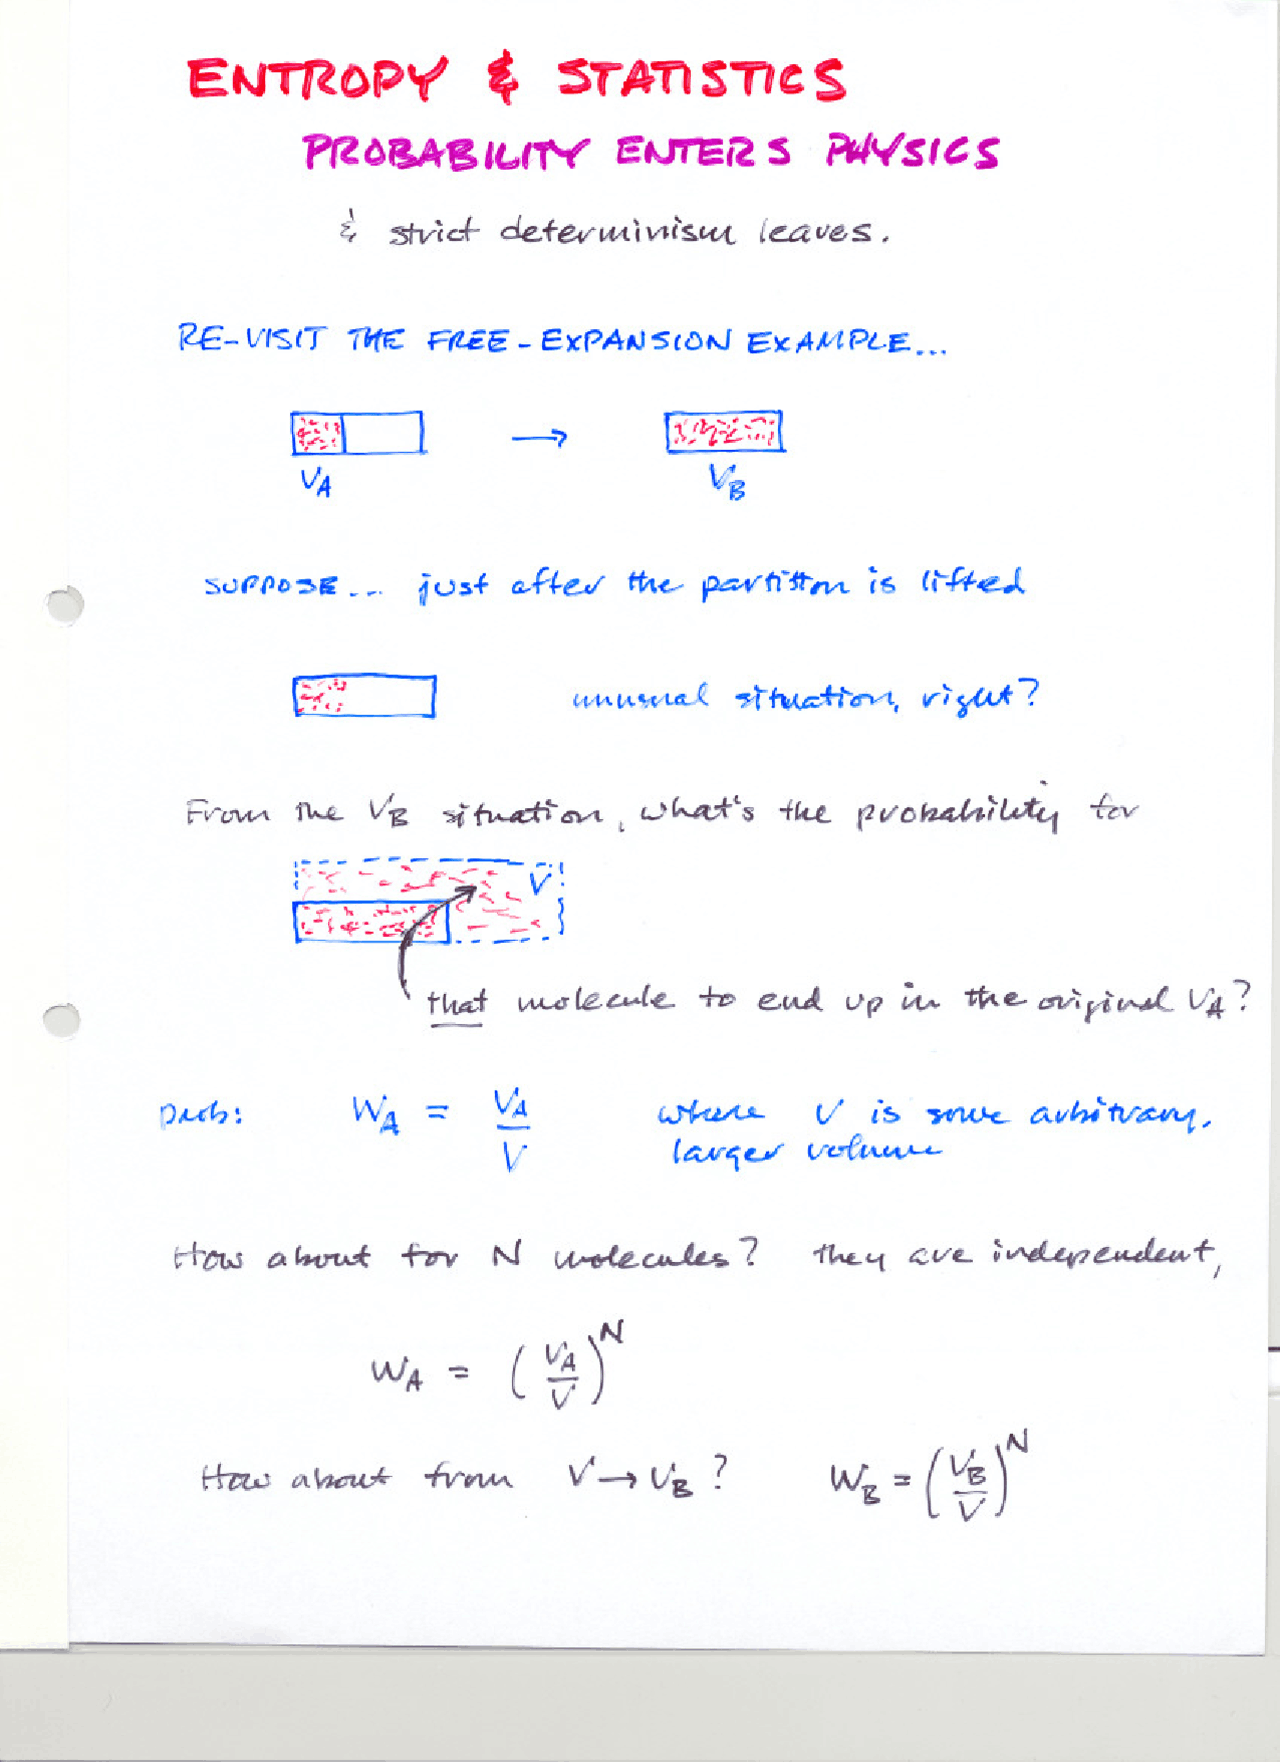 ENTROPY & STATISTICS
PROBABILITY ENTERS PHYSICS
& strict determinism leaves.
RE-VISIT THE FREE-EXPANSION EXAMPLE...
V_A → V_B
SUPPOSE... just after the partition is lifted
unusual situation, right?
From the V_B situation, what's the probability for
V
that molecule to end up in the original V_A?
prob: W_A = V_A/V where V is some arbitrary,
larger volume
How about for N molecules? They are independent,
W_A = (V_A/V)^N
How about from V → V_B? W_B = (V_B/V)^N